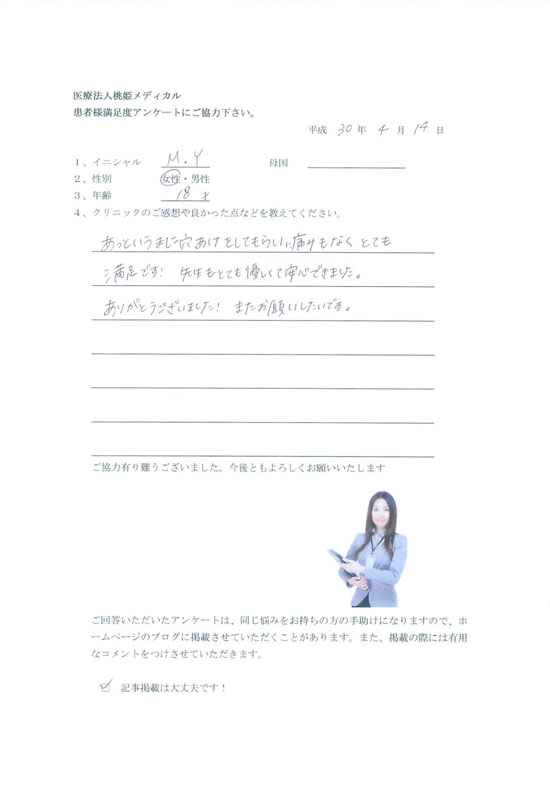 医療法人桃姫メディカル
患者様満足度アンケートにご協力下さい。
平成 30 年 4 月 14 日
1、イニシャル M.Y 母国
2、性別 女性・男性
3、年齢 18 才
4、クリニックのご感想や良かった点などを教えてください。
あっというまに穴あけをしてもらい、痛みもなく とても
満足です! 先生もとても優しくて安心できました。
ありがとうございました! またお願いしたいです。
ご協力有り難うございました。今後ともよろしくお願いいたします
ご回答いただいたアンケートは、同じ悩みをお持ちの方の手助けになりますので、ホ
ームページのブログに掲載させていただくことがあります。また、掲載の際には有用
なコメントをつけさせていただきます。
☑ 記事掲載は大丈夫です!